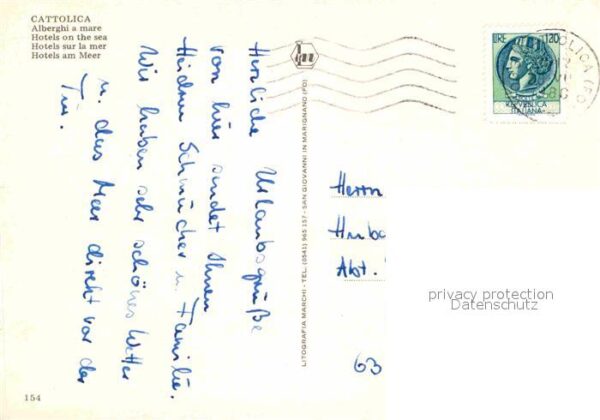 CATTOLICA
Alberghi a mare
Hotels on the sea
Hotels sur la mer
Hotels am Meer
Herzliche Urlaubsgrüße
von hier sendet Ihnen
Heiden Schmücher u. Familie.
Wir haben sehr schönes Wetter
u. das Meer direkt vor der
Tür.
LITOGRAFIA MARCHI - TEL. (0541) 965 157 - SAN GIOVANNI IN MARIGNANO (FO)
LIRE 120
REPVBBLICA
ITALIANA
Herrn
Abt.
63
privacy protection
Datenschutz
154